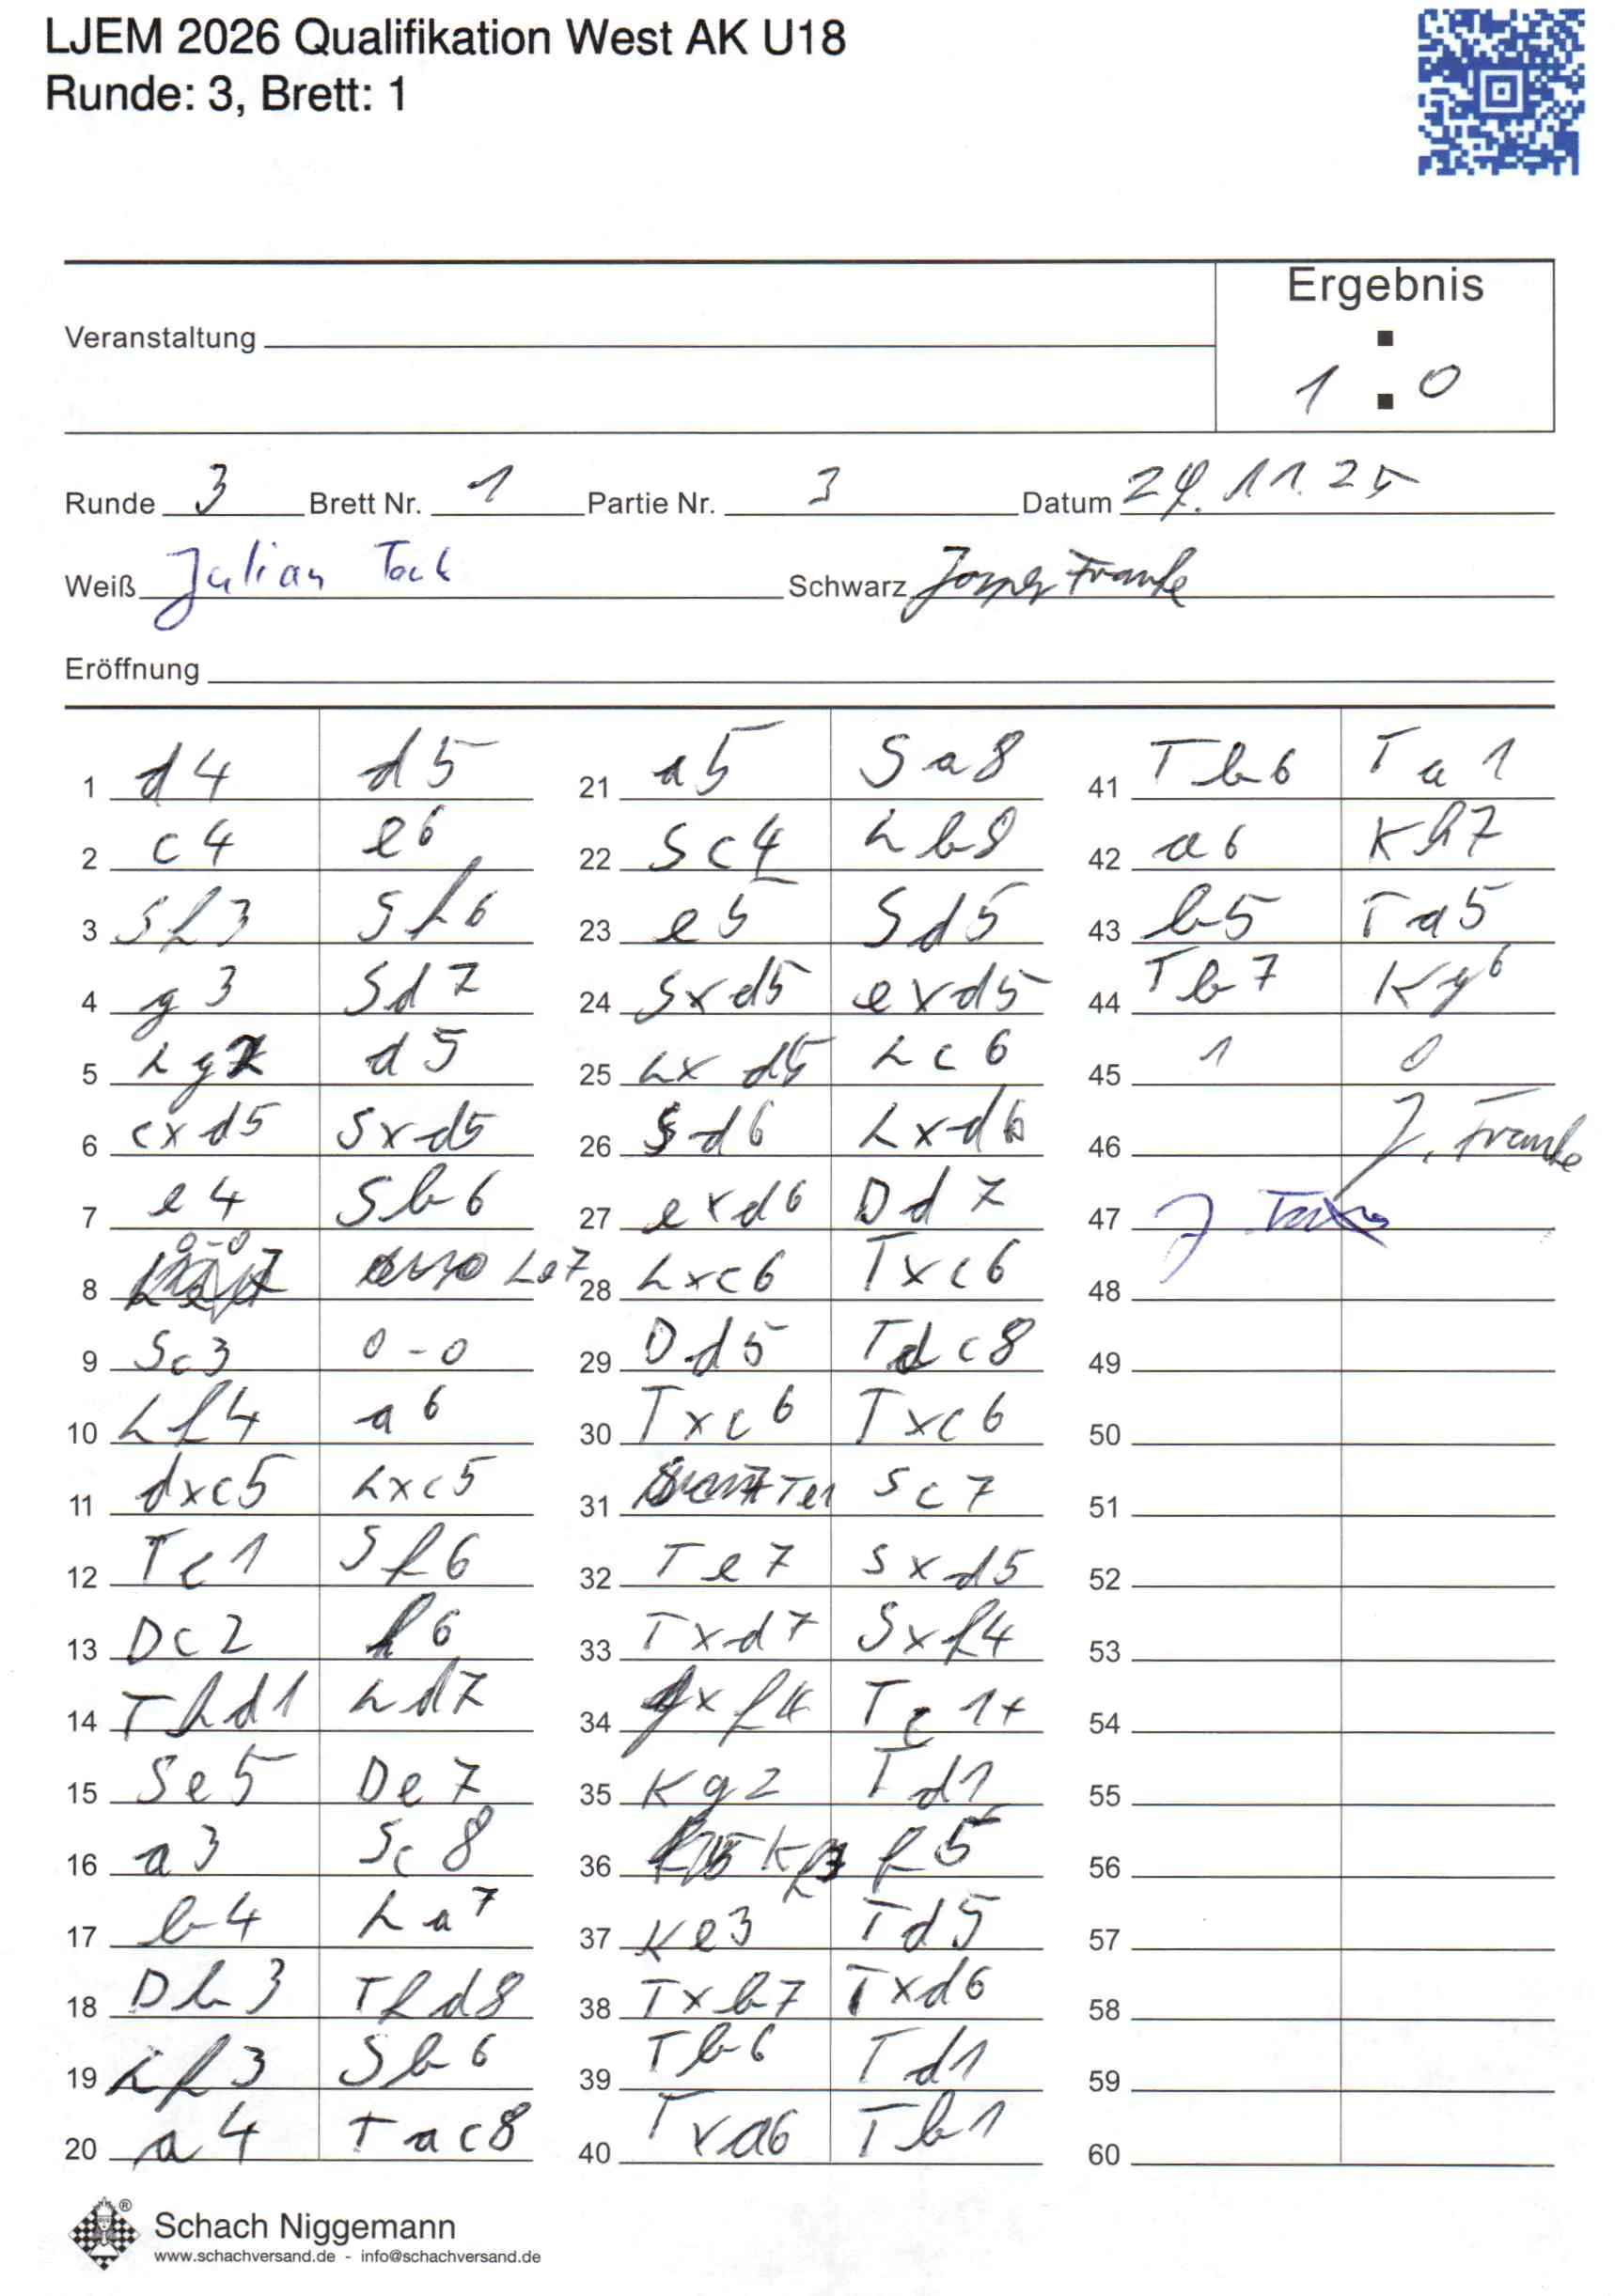 LJEM 2026 Qualifikation West AK U18
Runde: 3, Brett: 1
Ergebnis
Veranstaltung
1 : 0
Runde 3 Brett Nr. 1 Partie Nr. 3 Datum 29.11.25
Weiß Julian Schwarz Franke
Eröffnung
1 d4 d5 21 a5 Sa8 41 Tb6 Ta1
2 c4 e6 22 Sc4 Lb8 42 a6 Kh7
3 Sf3 Sf6 23 e5 Sd5 43 b5 Ta5
4 g3 Sd7 24 Sxd5 exd5 44 Tb7 Kg6
5 Lg2 d5 25 Lxd5 Lc6 45 1 0
6 cxd5 Sxd5 26 Sd6 Lxd6 46 J. Franke
7 e4 Sb6 27 exd6 Dd7 47
8 0-0 Le7 28 Lxc6 Txc6 48
9 Sc3 0-0 29 Dd5 Tdc8 49
10 Lf4 a6 30 Txc6 Txc6 50
11 dxc5 Lxc5 31 Te1 Sc7 51
12 Tc1 Sf6 32 Te7 Sxd5 52
13 Dc2 h6 33 Txd7 Sxf4 53
14 Tfd1 Ld7 34 gxf4 Tc1+ 54
15 Se5 De7 35 Kg2 Td1 55
16 a3 Sc8 36 Kf3 f5 56
17 b4 La7 37 Ke3 Td5 57
18 Db3 Tfd8 38 Txb7 Txd6 58
19 Lf3 Sb6 39 Tb6 Td1 59
20 a4 Tac8 40 Txa6 Tb1 60
Schach Niggemann
www.schachversand.de - info@schachversand.de